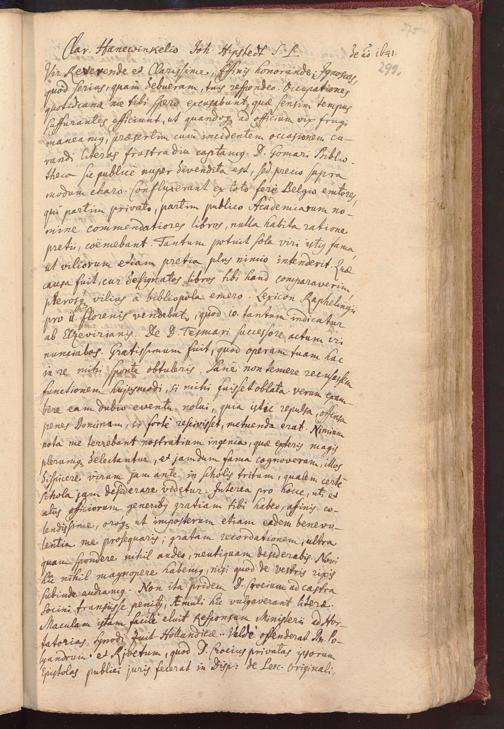 Clar. Hanewinkelio Joh. S. P. 1641.
299.
Vir Reverende et Clarissime, Affinis honorande; Ignoscas,
quod serius, quam debueram, tuis respondeo. Occupationes
quotidianæ me tibi excusabunt, quæ sensim tempus
suffurantes efficiunt, ut quandoq ad officium vix frugi
maneamq, præsertim cum incidentem occasionem
liberas frustra diu captamq. D. Gomari Biblio-
theca hic publicè nuper divendita est, sed precio supra
modum charo. Confluxerant ex toto ferè Belgio emtores,
qui partim privato, partim publico Academiarum no-
mine commendatiores libros, nulla habita ratione
pretii, coemebant. Tantum potuit sola viri istiq fama
ut viliorum etiam pretia plus nimio intenderit. Quæ
causa fuit, cur designatos libros tibi haud comparaverim,
vilius à bibliopola emero. Lexicon Raphelengii
pro 11 florenis vendebat, quod 10 tantum indicatur
ab Elzevirianis. De D. successore, actum eri
nunciabas. Gratissimum fuit, quod operam tuam hac
in re mihi sponte obtuleris. Sanè non temere recusassem
functionem hujusmodi, si mihi fuisset oblata: verum
eam dubio eventu nolui, quia istic repulsa, offensa
penes Dominam, forte rescivisset, metuenda erat. Nimium
nota me terrebant nostratium ingenia, quæ exteris magis
plerumq delectantur, et jamdum fama cognoveram, illos
virum jam ante in scholis tritum, qualem certè
schola jam desiderare videtur. Interea pro hocce, uti et
aliis officiorum generibq gratiam tibi habeo, affinis co-
lendissime, oroq ut imposterum etiam eadem benevo-
lentia me prosequaris; gratam recordationem, ultra
quam spondere nihil audeo, neutiquam desiderabis. Novi
hic nihil magnopere habemq, nisi quod de vestris rixis
subinde audiamq. Non ita pridem D. Crocium ad castra
Socini transisse penitq, Æmuli hic vulgaverant literæ.
Maculam istam facilè eluit Responsum Ministerii ad
quod fuit Hollandicè. Valdè offenderat D. Po-
lyandrum et Rivetum, quod D. Crocius privatas ipsorum
Epistolas publici juris fecerat in Disp. de Pecc. Originali,